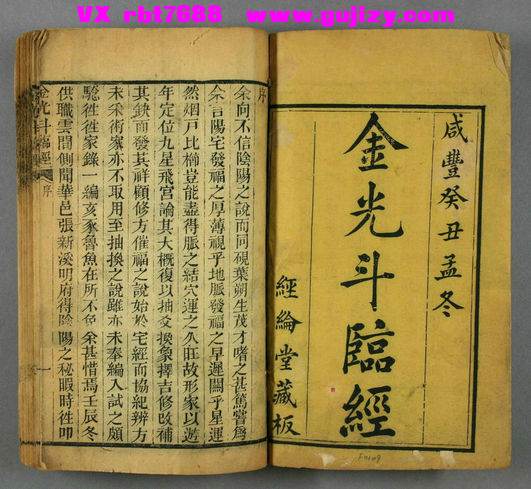 VX rbt7688 www.gujizy.com
咸豐癸丑孟冬
金光斗臨經
經綸堂藏板
序
余向不信陰陽之說而同硯葉朔生茂才嗜之甚篤嘗爲
余言陽宅發福之厚薄視乎地脈發福之早遲關乎星運
然烟戸比櫛豈能盡得脈之結穴運之久旺故形家以遊
年定位九星飛宮論其大概復以抽爻換象擇吉修改補
其缺而發其祥顧修方催福之說始於宅經而協紀辨方
未采術家亦不取用至抽換之說雖亦未奉編入試之頗
驗徃徃家錄一編亥豕魯魚在所不免余甚惜焉壬辰冬
供職雲間側聞華邑張新溪明府得陰陽之秘暇時徃叩
金光斗臨經 序 一